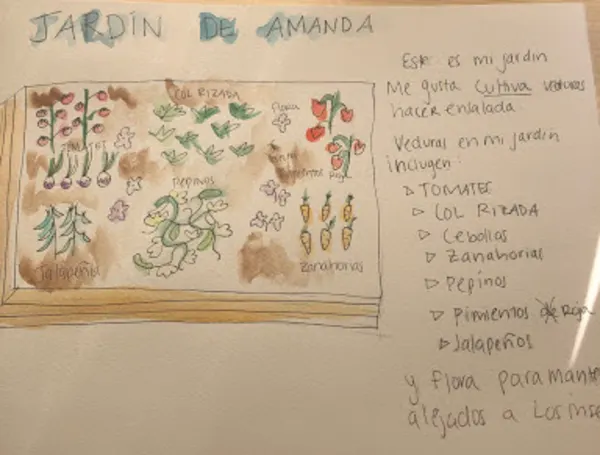 JARDÍN DE AMANDA
COL RIZADA
Flora
TOMATES
Pepinos
Pimientos Rojo
Jalapeños
Zanahorias
Este es mi jardin
Me gusta cultiva veduras
hacer ensalada.
Veduras en mi jardin
incluyen:
▷ TOMATES
▷ COL RIZADA
▷ Cebollas
▷ Zanahorias
▷ Pepinos
▷ Pimientos Rojo
▷ Jalapeños
y flora para
alejados a Los